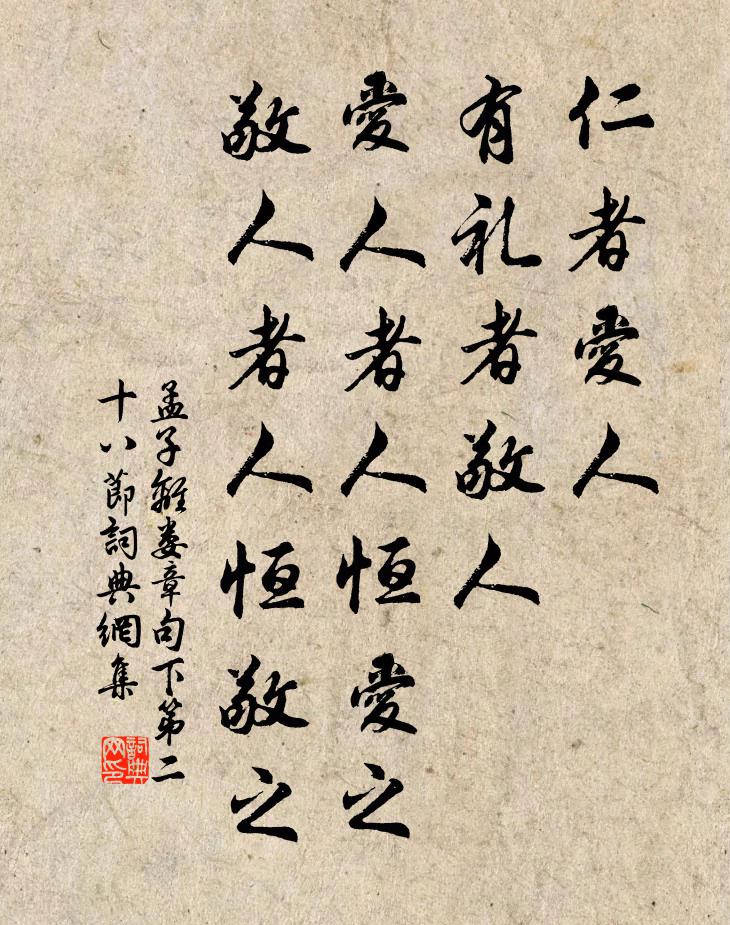 仁者愛人
有礼者敬人
愛人者人恒愛之
敬人者人恒敬之
孟子離娄章句下第二
十八節詞典網集
詞典
网印